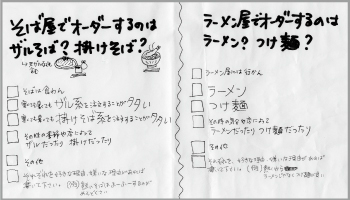 そば屋でオーダーするのは
ザルそば？掛けそば？
そばは食わん
ザル系を注文することが多い
掛けそば系を注文することが多い
その時の季節や店によって
ザルだったり 掛けだったり
その他
ラーメン屋でオーダーするのは
ラーメン？つけ麺？
ラーメン屋には行かん
ラーメン
つけ麺
その時の気分や店によって
ラーメンだったり つけ麺だったり
その他